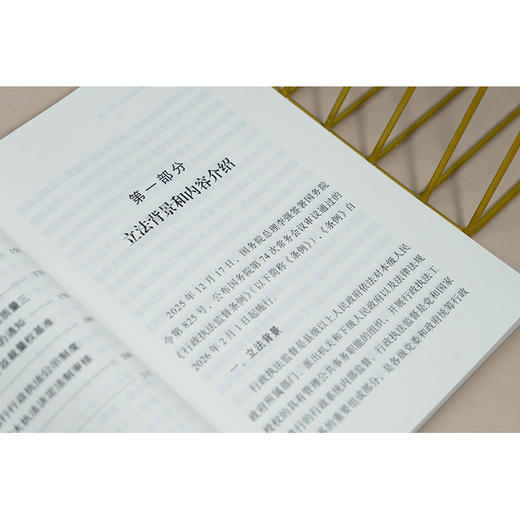 第一部分
立法背景和内容介绍
2025年12月17日，国务院总理李强签署国务院
令第825号，公布国务院第74次常务会议审议通过的
《行政执法监督条例》（以下简称《条例》），《条例》自
2026年2月1日起施行。
一、立法背景
行政执法监督是县级以上人民政府依法对本级人民
政府所属部门、派出机关和下级人民政府以及法律法规
授权的具有管理公共事务职能的组织，开展行政执法工
的行政系统内部监督。行政执法监督是党和国家
的重要组成部分，是各级党委和政府统筹行政
质量三
的通知
裁量权基准
行政执法公示制度
执法决定法制审核